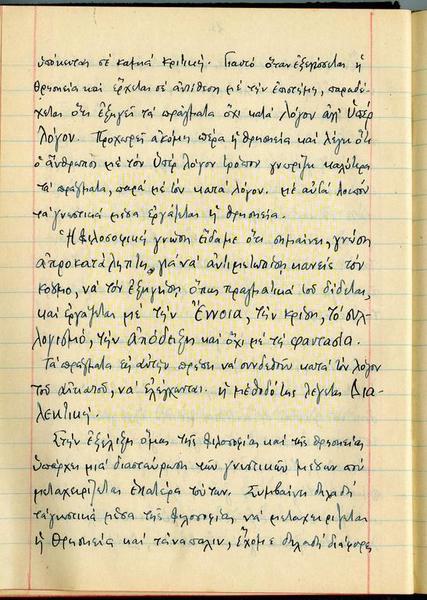 ὑπόκειται σέ καμιά κριτική. Γιαυτό ὅταν ἐξελίσσεται ἡ
θρησκεία καί ἔρχεται σέ ἀντίθεση μέ τήν ἐπιστήμη, παραδέ-
χεται ὅτι ἐξηγεῖ τά πράγματα ὄχι κατά λόγον ἀλλ' Ὑπέρ
λόγον. Προχωρεῖ ἀκόμη πέρα ἡ θρησκεία καί λέγει ὅτι
ὁ ἄνθρωπος μέ τόν Ὑπέρ λόγον τρόπον γνωρίζει καλύτερα
τά πράγματα, παρά μέ τόν κατά λόγον. μέ αὐτά λοιπόν
τά γνωστικά μέσα ἐργάζεται ἡ θρησκεία.
Ἡ φιλοσοφική γνώση εἴδαμε ὅτι σημαίνει, γνώση
ἀπροκατάληπτη, γιά νά ἀντιμετωπίση κανείς τόν
κόσμο, νά τόν ἐξηγήση ὅπως πραγματικά τοῦ δίδεται,
καί ἐργάζεται μέ τήν Ἔννοια, τήν κρίση, τό συλ-
λογισμό, τήν ἀπόδειξη καί ὄχι μέ τή φαντασία.
Τά πράγματα εἰς αὐτήν πρέπει νά συνδεθοῦν κατά τόν λόγον
τοῦ αἰτιατοῦ, νά ἐλέγχονται. ἡ μέθοδός της λέγεται Δια-
λεκτική.
Στήν ἐξέλιξη ὅμως τῆς φιλοσοφίας καί τῆς θρησκείας
ὑπάρχει μιά διασταύρωση τῶν γνωστικῶν μέσων πού
μεταχειρίζεται ἑκατέρα τούτων. Συμβαίνει δηλαδή
τά γνωστικά μέσα τῆς φιλοσοφίας νά μεταχειρίζεται
ἡ θρησκεία καί τἀνάπαλιν, ἔχομε δηλαδή διάφορες